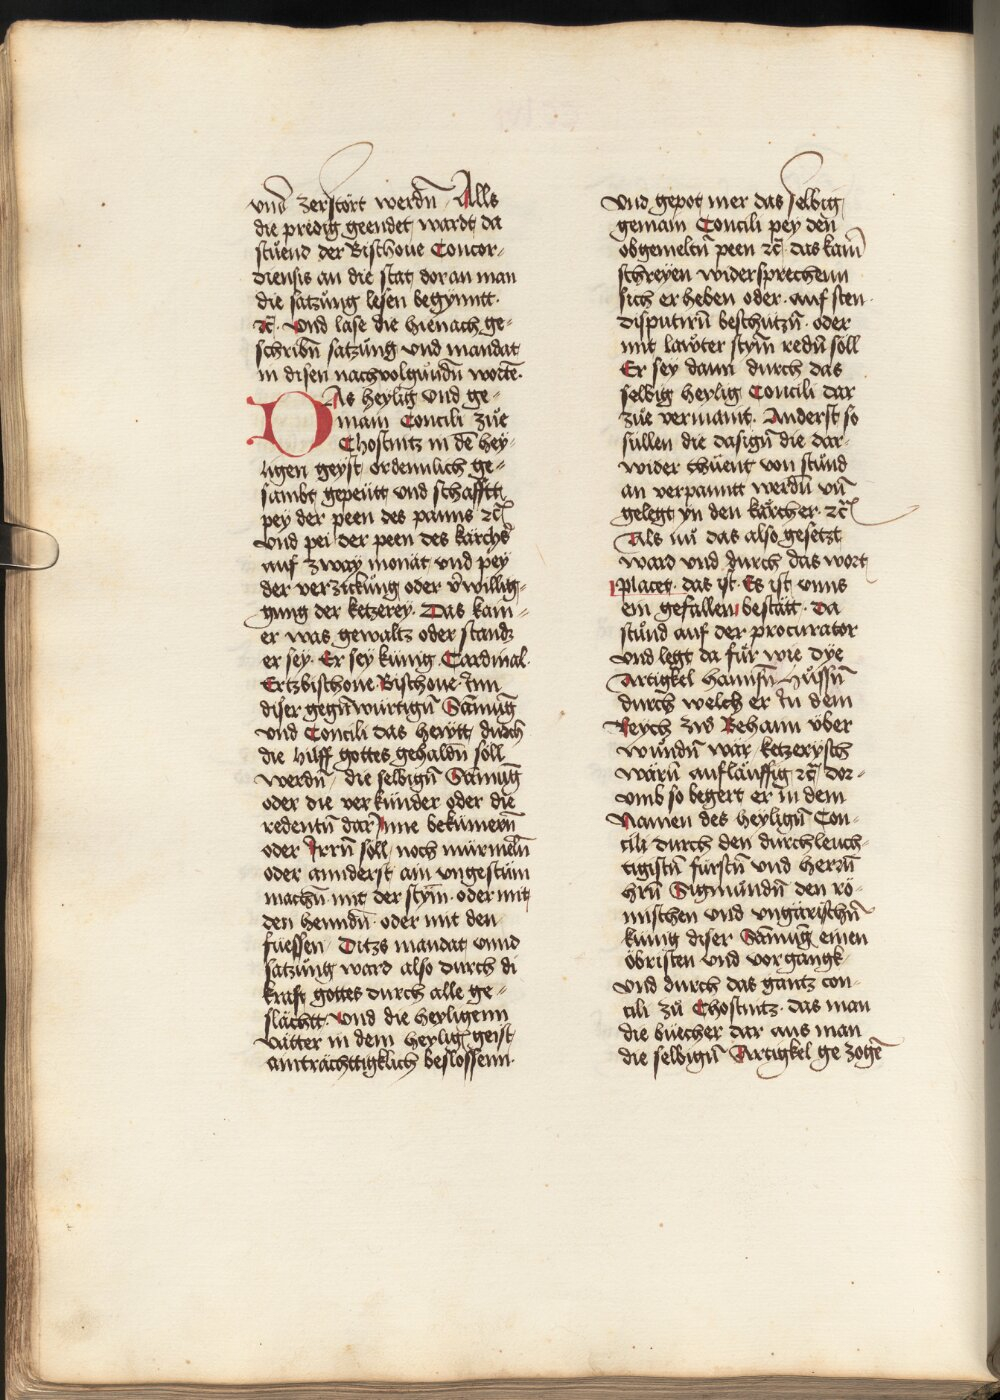 vnd zerstört werdn̄ Alls
die predig geendet wardt da
stüend der Bischoue Concor-
diensis an die stat doran man
die satzŭng lesen begynntt·
ꝛc̄· Vnd lase die hienach ge=
schribn̄ satzŭng vnd mandat
in disen nachvolgŭndn̄ wortē·
DAs heylig vnd ge=
main Concili zŭe
Chostnitz in dē hey-
ligen geyst ordennlich ge=
sambt gepeŭtt vnd schafftt
pey der peen des panns ꝛc̄
Vnd pei der peen des kärchs
auf zway monät vnd pey
der verzickŭng oder v̄willig=
gung der ketzerey· Das kain=
er was gewaltz oder standz
er sey· Er sey künig Cardinal·
Ertzbischoue Bischoue Inn
diser gegn̄würtign̄ Sāmŭg
vnd Concili das hewtt durch
die hilff gottes gehaldn̄ soll
werdn̄ die selbign̄ Sāmŭg
oder die verkünder oder die
redentn̄ dar Inne bekümern̄
oder Irrn̄ soll noch mürmeln̄
oder annderst ain vngestüm
machn̄ mit der stym̄· oder mit
den henndn̄· oder mit den
füessen Ditzs mandat vnnd
satzŭng ward also durch di
kraft gottes durch alle ge=
slächtt· Vnd die heyligenn
Vätter in dem heylig geist
ainträchttigklich beslossenn·
Vnd gepot mer das selbig
gemain Concili pey den
obgemeltn̄ peen ꝛc̄ das kain
schreyen widersprechenn
sich er heben oder· auf sten·
disputirn̄ beschutzn̄· oder
mit lawter stym̄ redn̄ söll
Er sey dann durch das
selbig heylig Concili dar
zŭe vermant· Anderst so
süllen die dasign̄ die dar-
wider thüent von stŭnd
an verpanntt werdn̄ vn̄
gelegt yn den kärcher· ꝛc̄
Als nŭ das also gesetzt
ward vnd durch das wort
placet das ist· Es ist vnns
ein gefallen bestätt· Da
stŭnd auf der procurator
vnd legt da für wie dye
Artigkel hannsn̄ Hŭssn̄
durch welch er In dem
Reych zw Behaim vber
wŭndn̄ wär ketzerysch
wärn̄ aufläuffig ꝛc̄ dor=
vmb so begert er in dem
Namen des heylign̄ Con-
cili durch den durchleuch-
tigistn̄ fürstn̄ vnd herzn̄
hrn̄ Sigmŭndn̄ den rö-
mischen vnd vngärischn̄
künig diser Sāmŭg einen
öbristen vnd vorgangk
vnd durch das gantz con-
cili zŭ Chostnitz· das man
die büecher dar aus man
die selbign̄ Artigkel gezogē